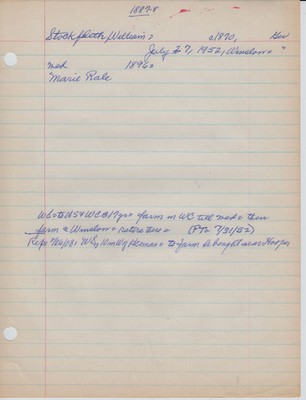 1887-8
Stockfleth, William c1870, Ger
July 27, 1952, Winslow
med 1896
Marie Rale
WC 17 yr farm in WC till med then
farm Winslow retire there (PTr 7/31/52)
Rep Wm Wy Herman to farm he bought near Hooper